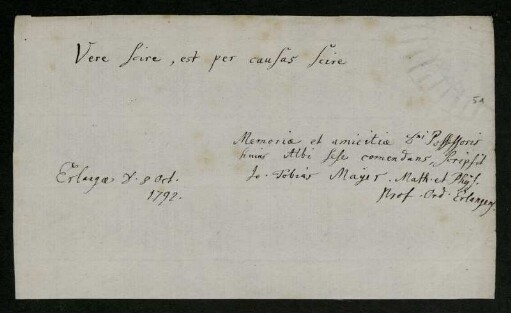 Vere scire, est per causas scire
5a
Memoriæ et amicitiæ Possessoris
huius Albi sese comendans, scripsit
Erlangæ d. 8 Oct. Jo. Tobias Mayer. Math. et Phys.
1792. Prof. Ord. Erlangens.